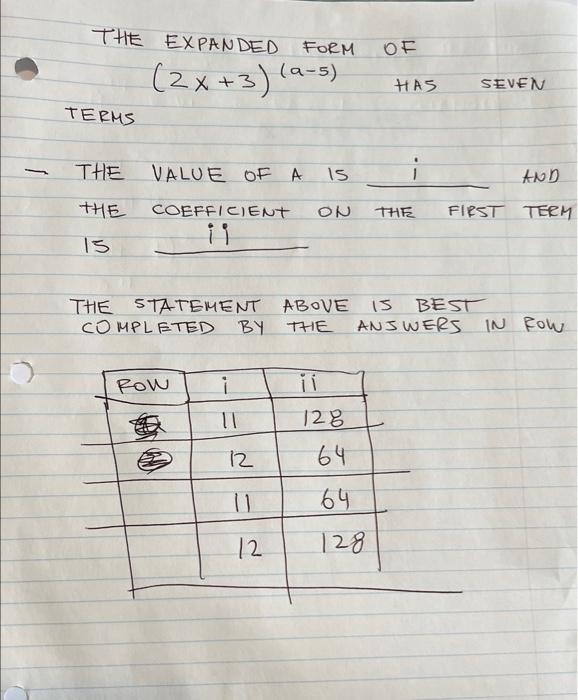 THE EXPANDED FORM OF
(2x+3)^(a-5) HAS SEVEN
TERMS
— THE VALUE OF A IS i AND
THE COEFFICIENT ON THE FIRST TERM
IS ii
THE STATEMENT ABOVE IS BEST
COMPLETED BY THE ANSWERS IN ROW
ROW i ii
11 128
12 64
11 64
12 128